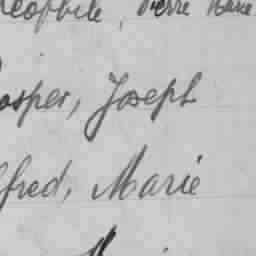 éophile, Pierre Marie
osper, Joseph
fred, Marie